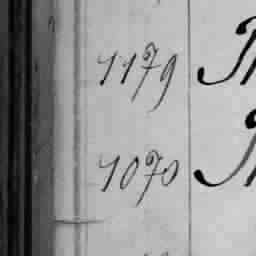 1179
1070